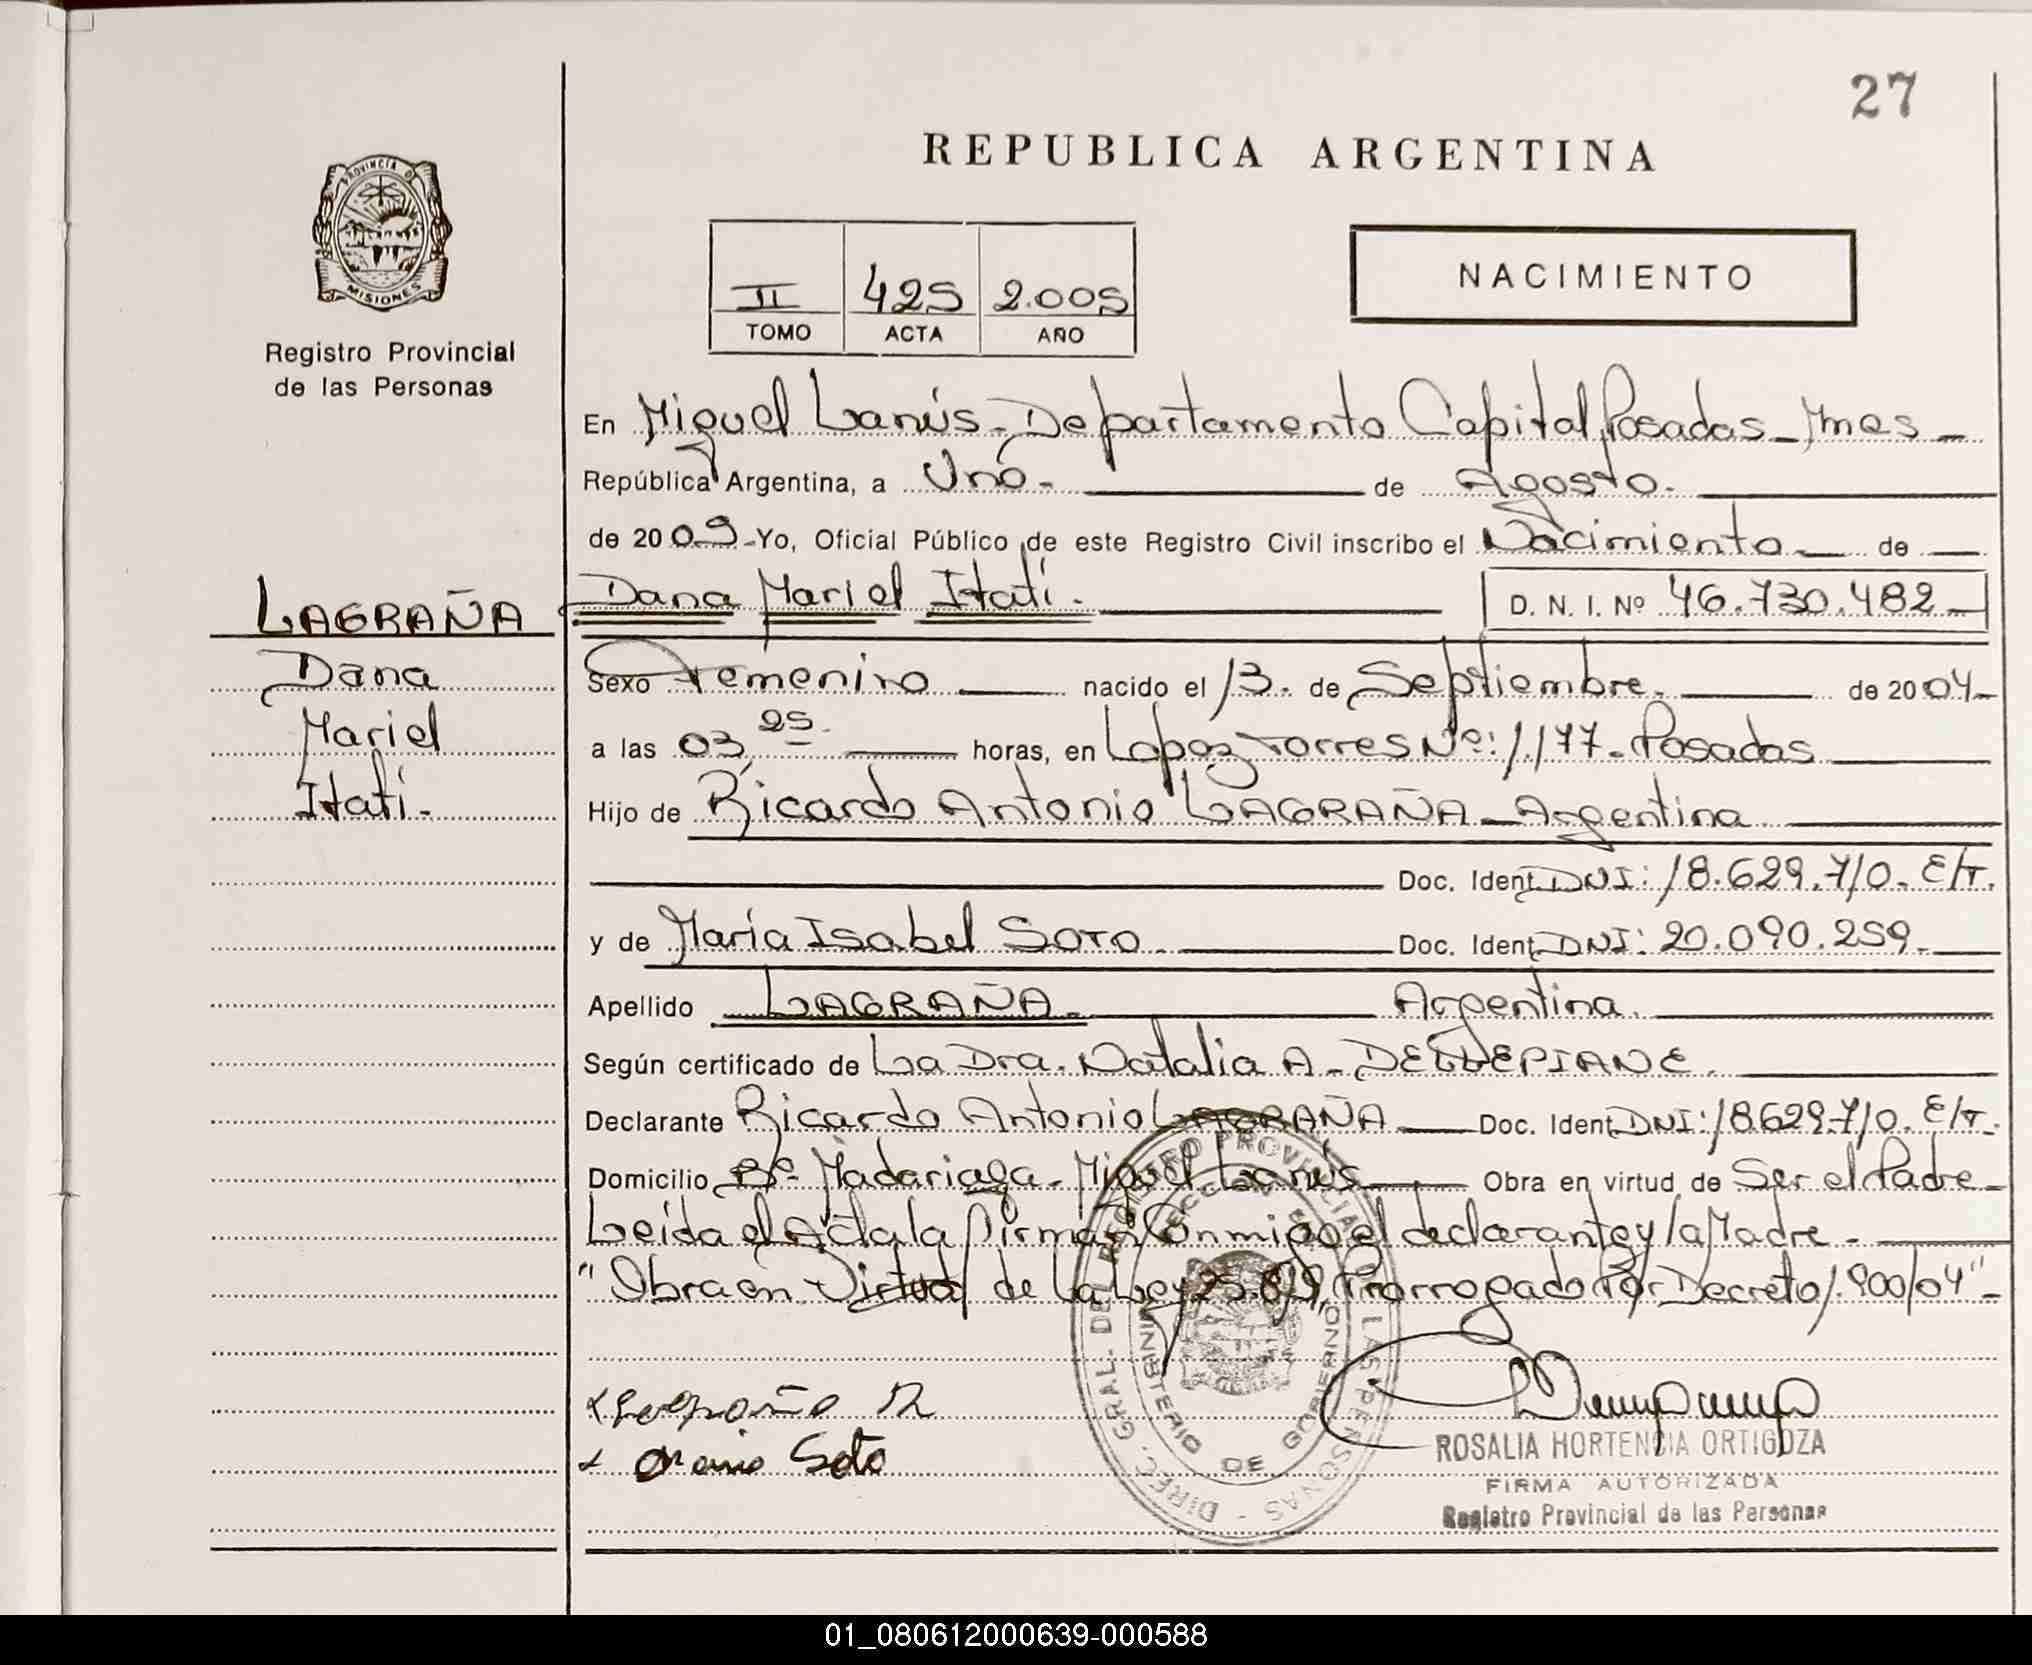 27
REPUBLICA ARGENTINA
PROVINCIA DE
MISIONES
Registro Provincial
de las Personas
II 425 2.005
TOMO ACTA AÑO
NACIMIENTO
En Miguel Lanús - Departamento Capital, Posadas - Mnes -
República Argentina, a Uno - de Agosto.
de 2005 - Yo, Oficial Público de este Registro Civil inscribo el Nacimiento de
LAGRAÑA
Dana Mariel Itatí. D. N. I. Nº 46.730.482
Dana
Mariel
Itatí.
Sexo Femenino nacido el 13. de Septiembre. de 2004
a las 03,25 horas, en Lopez Torres Nº: 1.177 - Posadas
Hijo de Ricardo Antonio LAGRAÑA - Argentina
Doc. Ident. DNI: 18.629.710. E/T.
y de María Isabel SOTO Doc. Ident. DNI: 20.090.259.
Apellido LAGRAÑA. Argentina.
Según certificado de La Dra. Natalia A. DELLEPIANE.
Declarante Ricardo Antonio LAGRAÑA Doc. Ident. DNI: 18.629.710. E/T.
Domicilio Bº Madariaga - Miguel Lanús Obra en virtud de Ser el Padre
Leida el Acta la firman Conmigo el declarante y la Madre.
"Obra en Virtud de La Ley 25.819, Prorrogado Por Decreto 1.900/04"
DIREC. GRAL. DEL REGISTRO PROVINCIAL DE LAS PERSONAS
MINISTERIO DE GOBIERNO
Maria Soto
ROSALIA HORTENCIA ORTIGOZA
FIRMA AUTORIZADA
Registro Provincial de las Personas
01_080612000639-000588